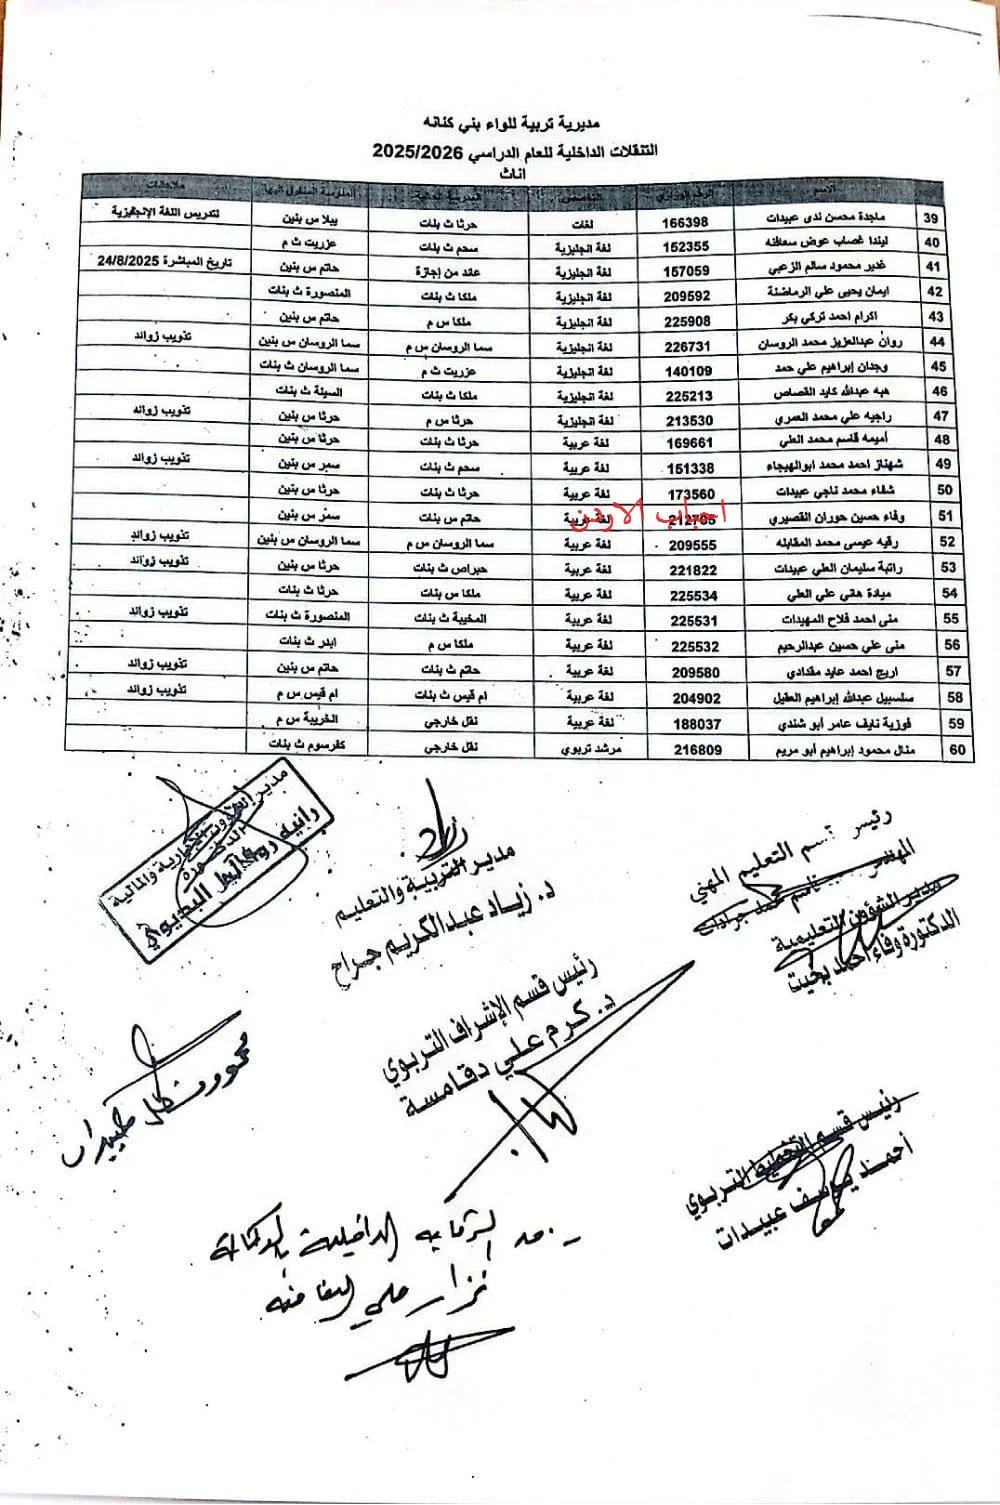 مديرية تربية للواء بني كنانه
التنقلات الداخلية للعام الدراسي 2025/2026
اناث
الاسم الرقم الوزاري التخصص المدرسة الحالية المدرسة المنقول اليها ملاحظات
39 ماجدة محسن ندى عبيدات 166398 لغات حرثا ث بنات يبلا س بنين لتدريس اللغة الإنجليزية
40 ليندا غصاب عوض سعافنه 152355 لغة انجليزية سحم ث بنات عزريت ث م
41 غدير محمود سالم الزعبي 157059 لغة انجليزية عائد من إجازة حاتم س بنين تاريخ المباشرة 24/8/2025
42 ايمان يحيى علي الرماضنة 209592 لغة انجليزية ملكا ث بنات المنصورة ث بنات
43 اكرام احمد تركي بكر 225908 لغة انجليزية ملكا س م حاتم س بنين
44 روان عبدالعزيز محمد الروسان 226731 لغة انجليزية سما الروسان س م سما الروسان س بنين تذويب زوائد
45 وجدان إبراهيم علي حمد 140109 لغة انجليزية عزريت ث م سما الروسان ث بنات
46 هبه عبدالله كايد القصاص 225213 لغة انجليزية ملكا ث بنات السيلة ث بنات
47 راجيه علي محمد العمري 213530 لغة انجليزية حرثا س م حرثا س بنين تذويب زوائد
48 أميمه قاسم محمد العلي 169661 لغة عربية حرثا ث بنات حرثا س بنين
49 شهناز احمد محمد ابوالهيجاء 151338 لغة عربية سحم ث بنات سمر س بنين تذويب زوائد
50 شفاء محمد ناجي عبيدات 173560 لغة عربية حرثا ث بنات حرثا س بنين
51 وفاء حسين حوران القصيري 212705 لغة عربية حاتم س بنات سمر س بنين
احباب الاردن
52 رقيه عيسى محمد المقابله 209555 لغة عربية سما الروسان س م سما الروسان س بنين تذويب زوائد
53 راتبة سليمان العلي عبيدات 221822 لغة عربية حبراص ث بنات حرثا س بنين تذويب زوائد
54 ميادة هاني علي العلي 225534 لغة عربية ملكا س بنات حرثا ث بنات
55 منى احمد فلاح المهيدات 225531 لغة عربية المخيبة ث بنات المنصورة ث بنات تذويب زوائد
56 منى علي حسين عبدالرحيم 225532 لغة عربية ملكا س م ابدر ث بنات
57 اريج احمد عايد مقدادي 209580 لغة عربية حاتم ث بنات حاتم س بنين تذويب زوائد
58 سلسبيل عبدالله إبراهيم العقيل 204902 لغة عربية ام قيس ث بنات ام قيس س م تذويب زوائد
59 فوزية نايف عامر أبو شندي 188037 لغة عربية نقل خارجي الخريبة س م
60 منال محمود إبراهيم أبو مريم 216809 مرشد تربوي نقل خارجي كفرسوم ث بنات
رئيس قسم التعليم المهني
المهندس قاسم محمد جرادات
مدير الشؤون التعليمية
الدكتورة وفاء احمد بخيت
مدير التربية والتعليم
د. زياد عبدالكريم جراح
مدير الشؤون الإدارية والمالية
الدكتورة
رانيه البديوي
رئيس قسم الإشراف التربوي
د. كرم علي دقامسة
رئيس قسم التخطيط التربوي
أحمد يوسف عبيدات
الرقابه الداخلية بالوكالة
نزار علي